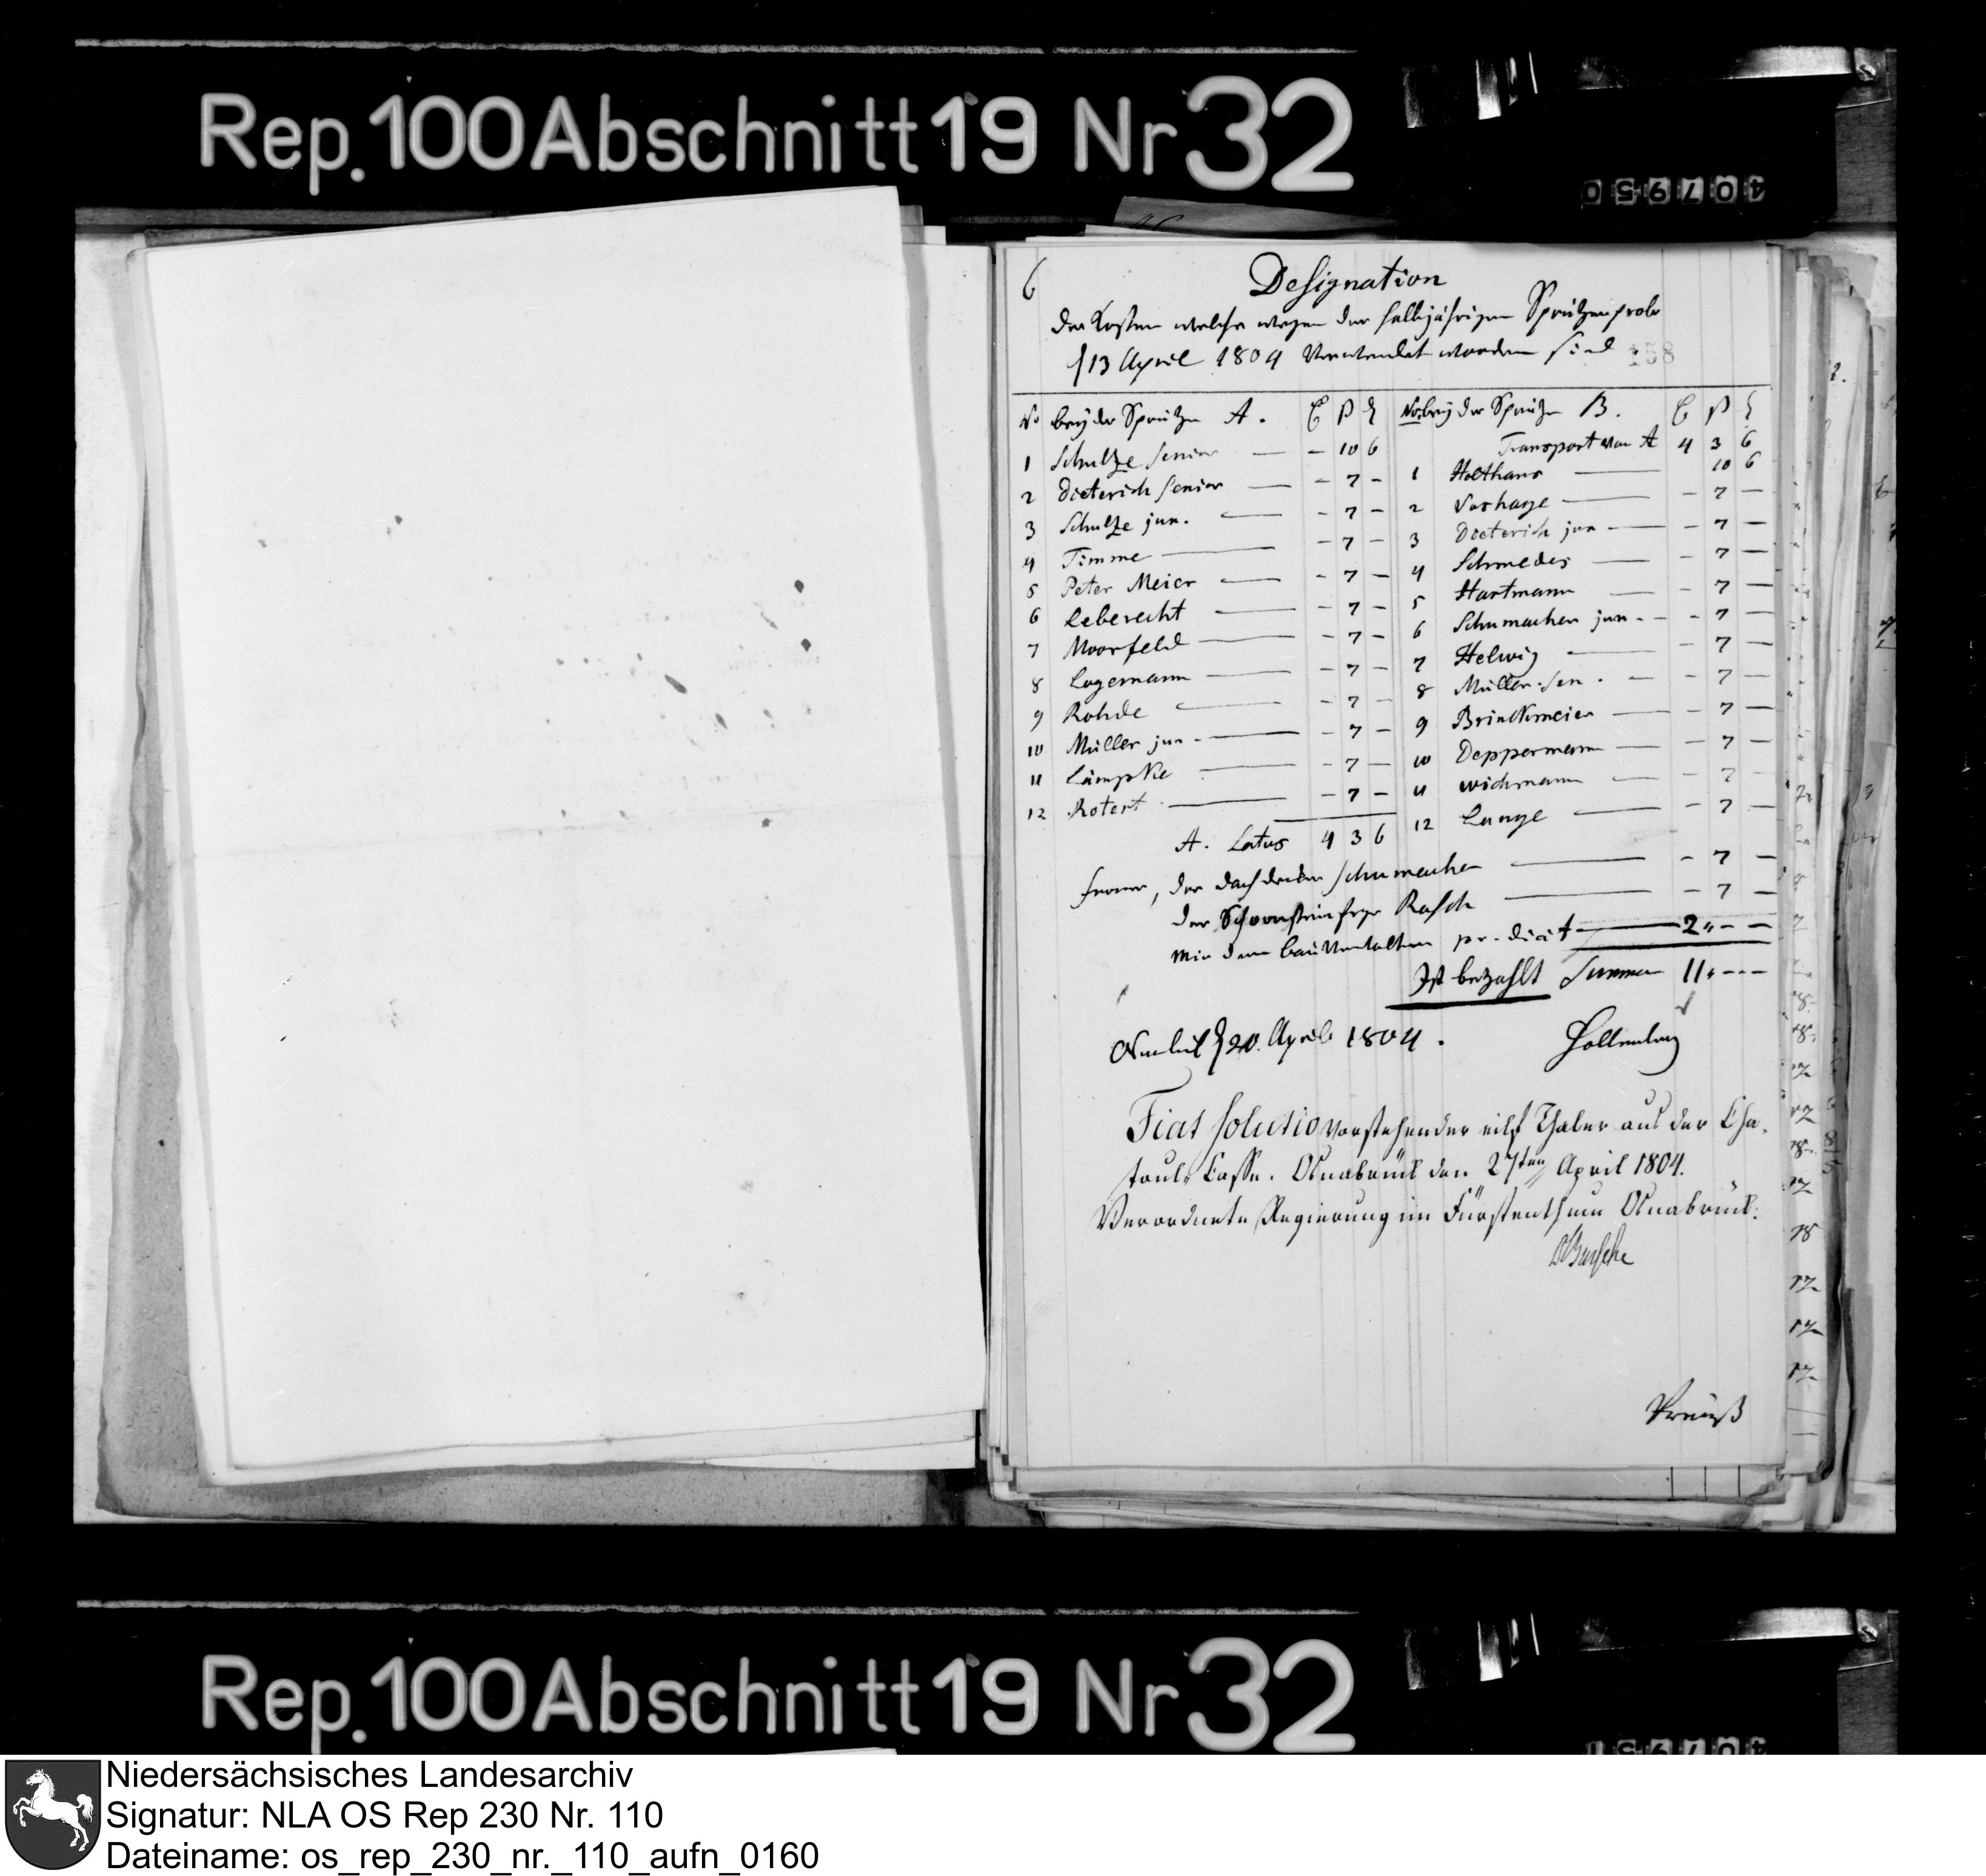 Rep. 100 Abschnitt 19 Nr 32
407950
6
Designation
der Kosten welche wegen der halbjährigen Sprützenprobe
13 April 1804 verwendet worden sind
158
No bey der Sprütze A.
1 Schultze senior — – 10 6
2 Dieterich senior — – 7 –
3 Schultze jun. — – 7 –
4 Timme — – 7 –
5 Peter Meier — – 7 –
6 Leberecht — – 7 –
7 Moorfeld — – 7 –
8 Logemann — – 7 –
9 Rohde — – 7 –
10 Müller jun. — – 7 –
11 Lämpke — – 7 –
12 Rotert — – 7 –
A. Latus 4 3 6
No bey der Sprütze B.
Transport von A 4 3 6
1 Holthaus — 10 6
2 Vorhage — – 7 –
3 Dieterich jun — – 7 –
4 Schmedes — – 7 –
5 Hartmann — – 7 –
6 Schumacher jun. – – 7 –
7 Helwig — – 7 –
8 Müller sen. — – 7 –
9 Brinkmeier — – 7 –
10 Deppermann — – 7 –
11 Wichmann — – 7 –
12 Lange — – 7 –
ferner, der Dachdecker Schumacher — – 7 –
der Schornsteinfeger Rasch — – 7 –
mir dem Bauverwalter pr. diät — 2 „ – –
Ist bezahlt Summa 11 „ – – –
20. April 1804. Hollenberg
Fiat solutio vorstehender eilf Thaler aus der Cha-
toul Casse. Osnabrück den 27ten April 1804.
Verordnete Regierung im Fürstenthum Osnabrück.
Rep. 100 Abschnitt 19 Nr 32
Niedersächsisches Landesarchiv
Signatur: NLA OS Rep 230 Nr. 110
Dateiname: os_rep_230_nr._110_aufn_0160